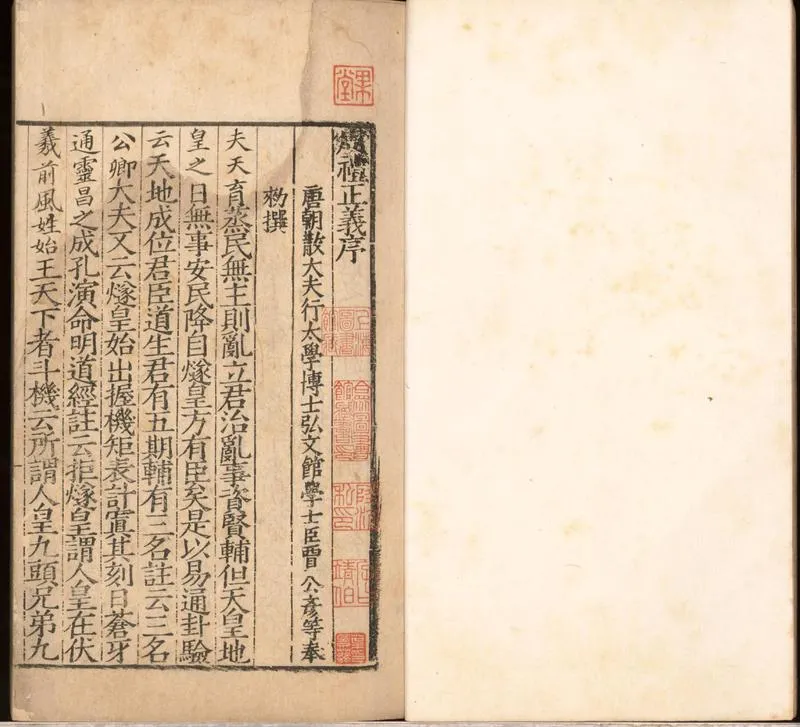 果堂
禮正義序
唐朝散大夫行太學博士弘文館學士臣賈公彥等奉
勑撰
夫天育蒸民無主則亂立君治亂事資賢輔但天皇地
皇之日無事安民降自燧皇方有臣矣是以易通卦驗
云天地成位君臣道生君有五期輔有三名註云三名
公卿大夫又云燧皇始出握機矩表計寘其刻曰蒼牙
通靈昌之成孔演命明道經註云拒燧皇謂人皇在伏
羲前風姓始王天下者斗機云所謂人皇九頭兄弟九